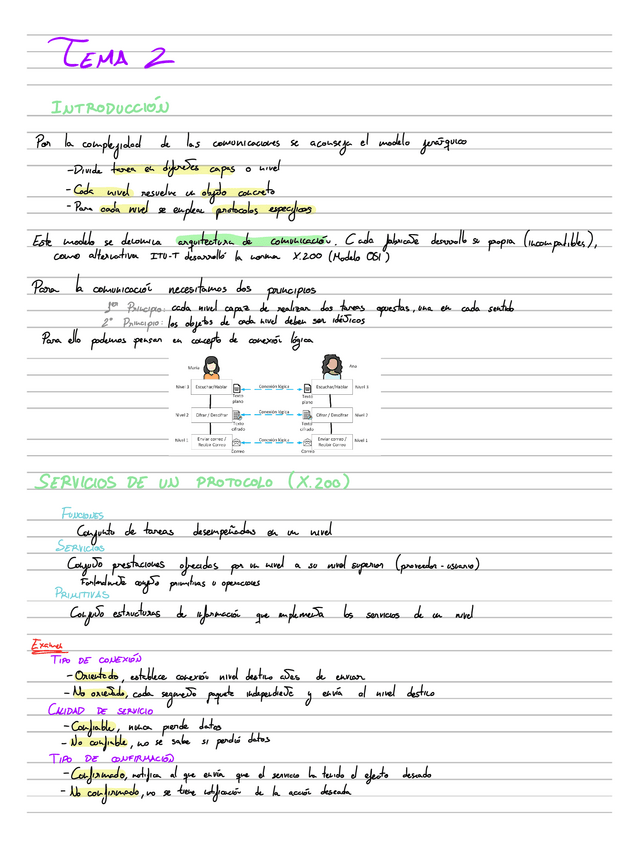 TEMA 2
INTRODUCCIÓN
Por la complejidad de las comunicaciones se aconseja el modelo jerárquico
- Divide tarea en diferentes capas o nivel
- Cada nivel resuelve un objeto concreto
- Para cada nivel se emplear protocolos específicos
Este modelo se denomica arquitectura de comunicación. Cada fabricante desarrolló su propia (incompatibles),
como alternativa ITU-T desarrolló la norma X.200 (Modelo OSI)
Para la comunicación necesitamos dos principios
1er Principio: cada nivel capaz de realizar dos tareas opuestas, una en cada sentido
2º Principio: los objetos de cada nivel deben ser idénticos
Para ello podemos pensar en concepto de conexión lógica
María Ana
Nivel 3 Escuchar/Hablar Conexión lógica Escuchar/Hablar Nivel 3
Texto plano Texto plano
Nivel 2 Cifrar / Descifrar Conexión lógica Cifrar / Descifrar Nivel 2
Texto cifrado Texto cifrado
Nivel 1 Enviar correo / Recibir Correo Conexión lógica Enviar correo / Recibir Correo Nivel 1
Correo Correo
SERVICIOS DE UN PROTOCOLO (X.200)
FUNCIONES
Conjunto de tareas desempeñadas en un nivel
SERVICIOS
Conjunto prestaciones ofrecidas por un nivel a su nivel superior (proveedor-usuario)
conjunto primitivas u operaciones
PRIMITIVAS
Conjunto estructuras de información que implementa los servicios de un nivel
Examen
TIPO DE CONEXIÓN
- Orientado, establece conexión nivel destino antes de enviar
- No orientado, cada segmento paquete independiente y envía al nivel destino
CALIDAD DE SERVICIO
- Confiable, nunca pierde datos
- No confiable, no se sabe si perdió datos
TIPO DE CONFIRMACIÓN
- Confirmado, notifica al que envía que el servicio ha tenido el efecto deseado
- No confirmado, no se tiene notificación de la acción deseada